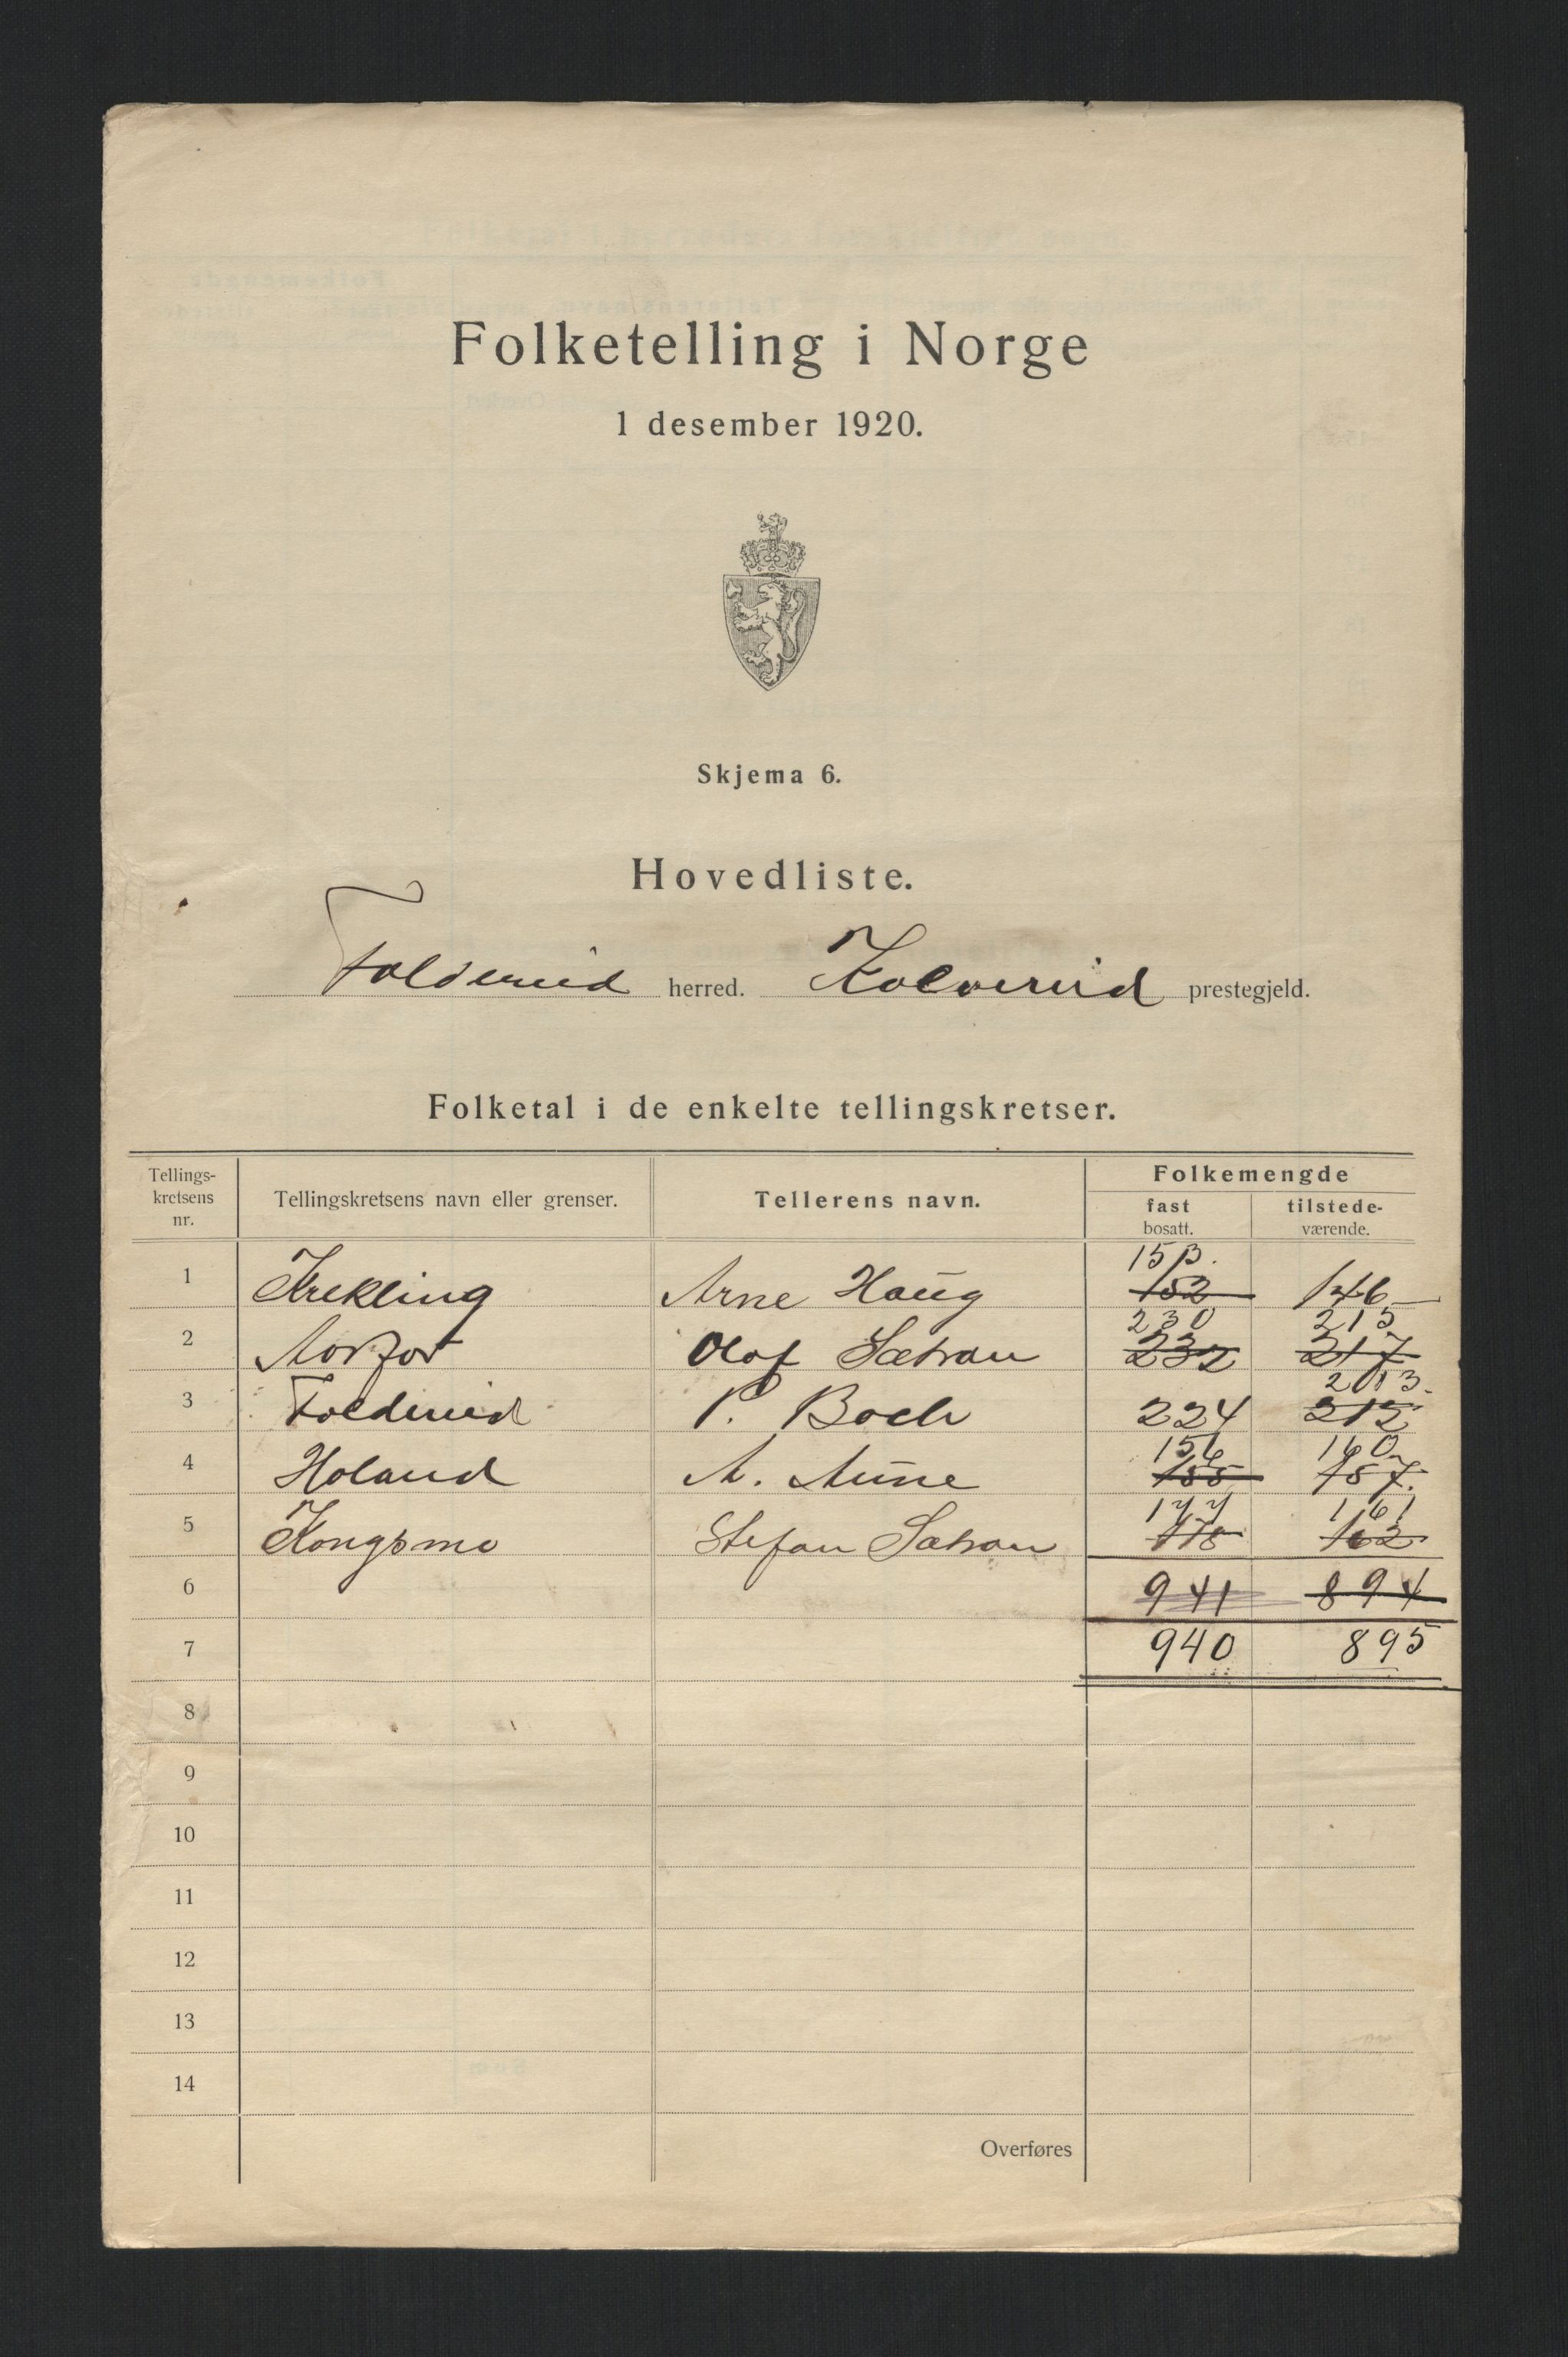 Folketelling i Norge
1 desember 1920.
Skjema 6.
Hovedliste.
Foldereid herred. Kolvereid prestegjeld.
Folketal i de enkelte tellingskretser.
Tellings-kretsens nr. Tellingskretsens navn eller grenser. Tellerens navn. Folkemengde
fast bosatt. tilstede-værende.
153.
1 Krekling Arne Haug 152 146
230 215
2 Aarfor Olaf Sætran 232 217
213.
3 Foldereid P. Boch 224 212
156 160
4 Holand A. Aune 155 157.
177 161
5 Kongsmo Stefan Sætran 178 162
6 941 894
7 940 895
8
9
10
11
12
13
14
Overføres